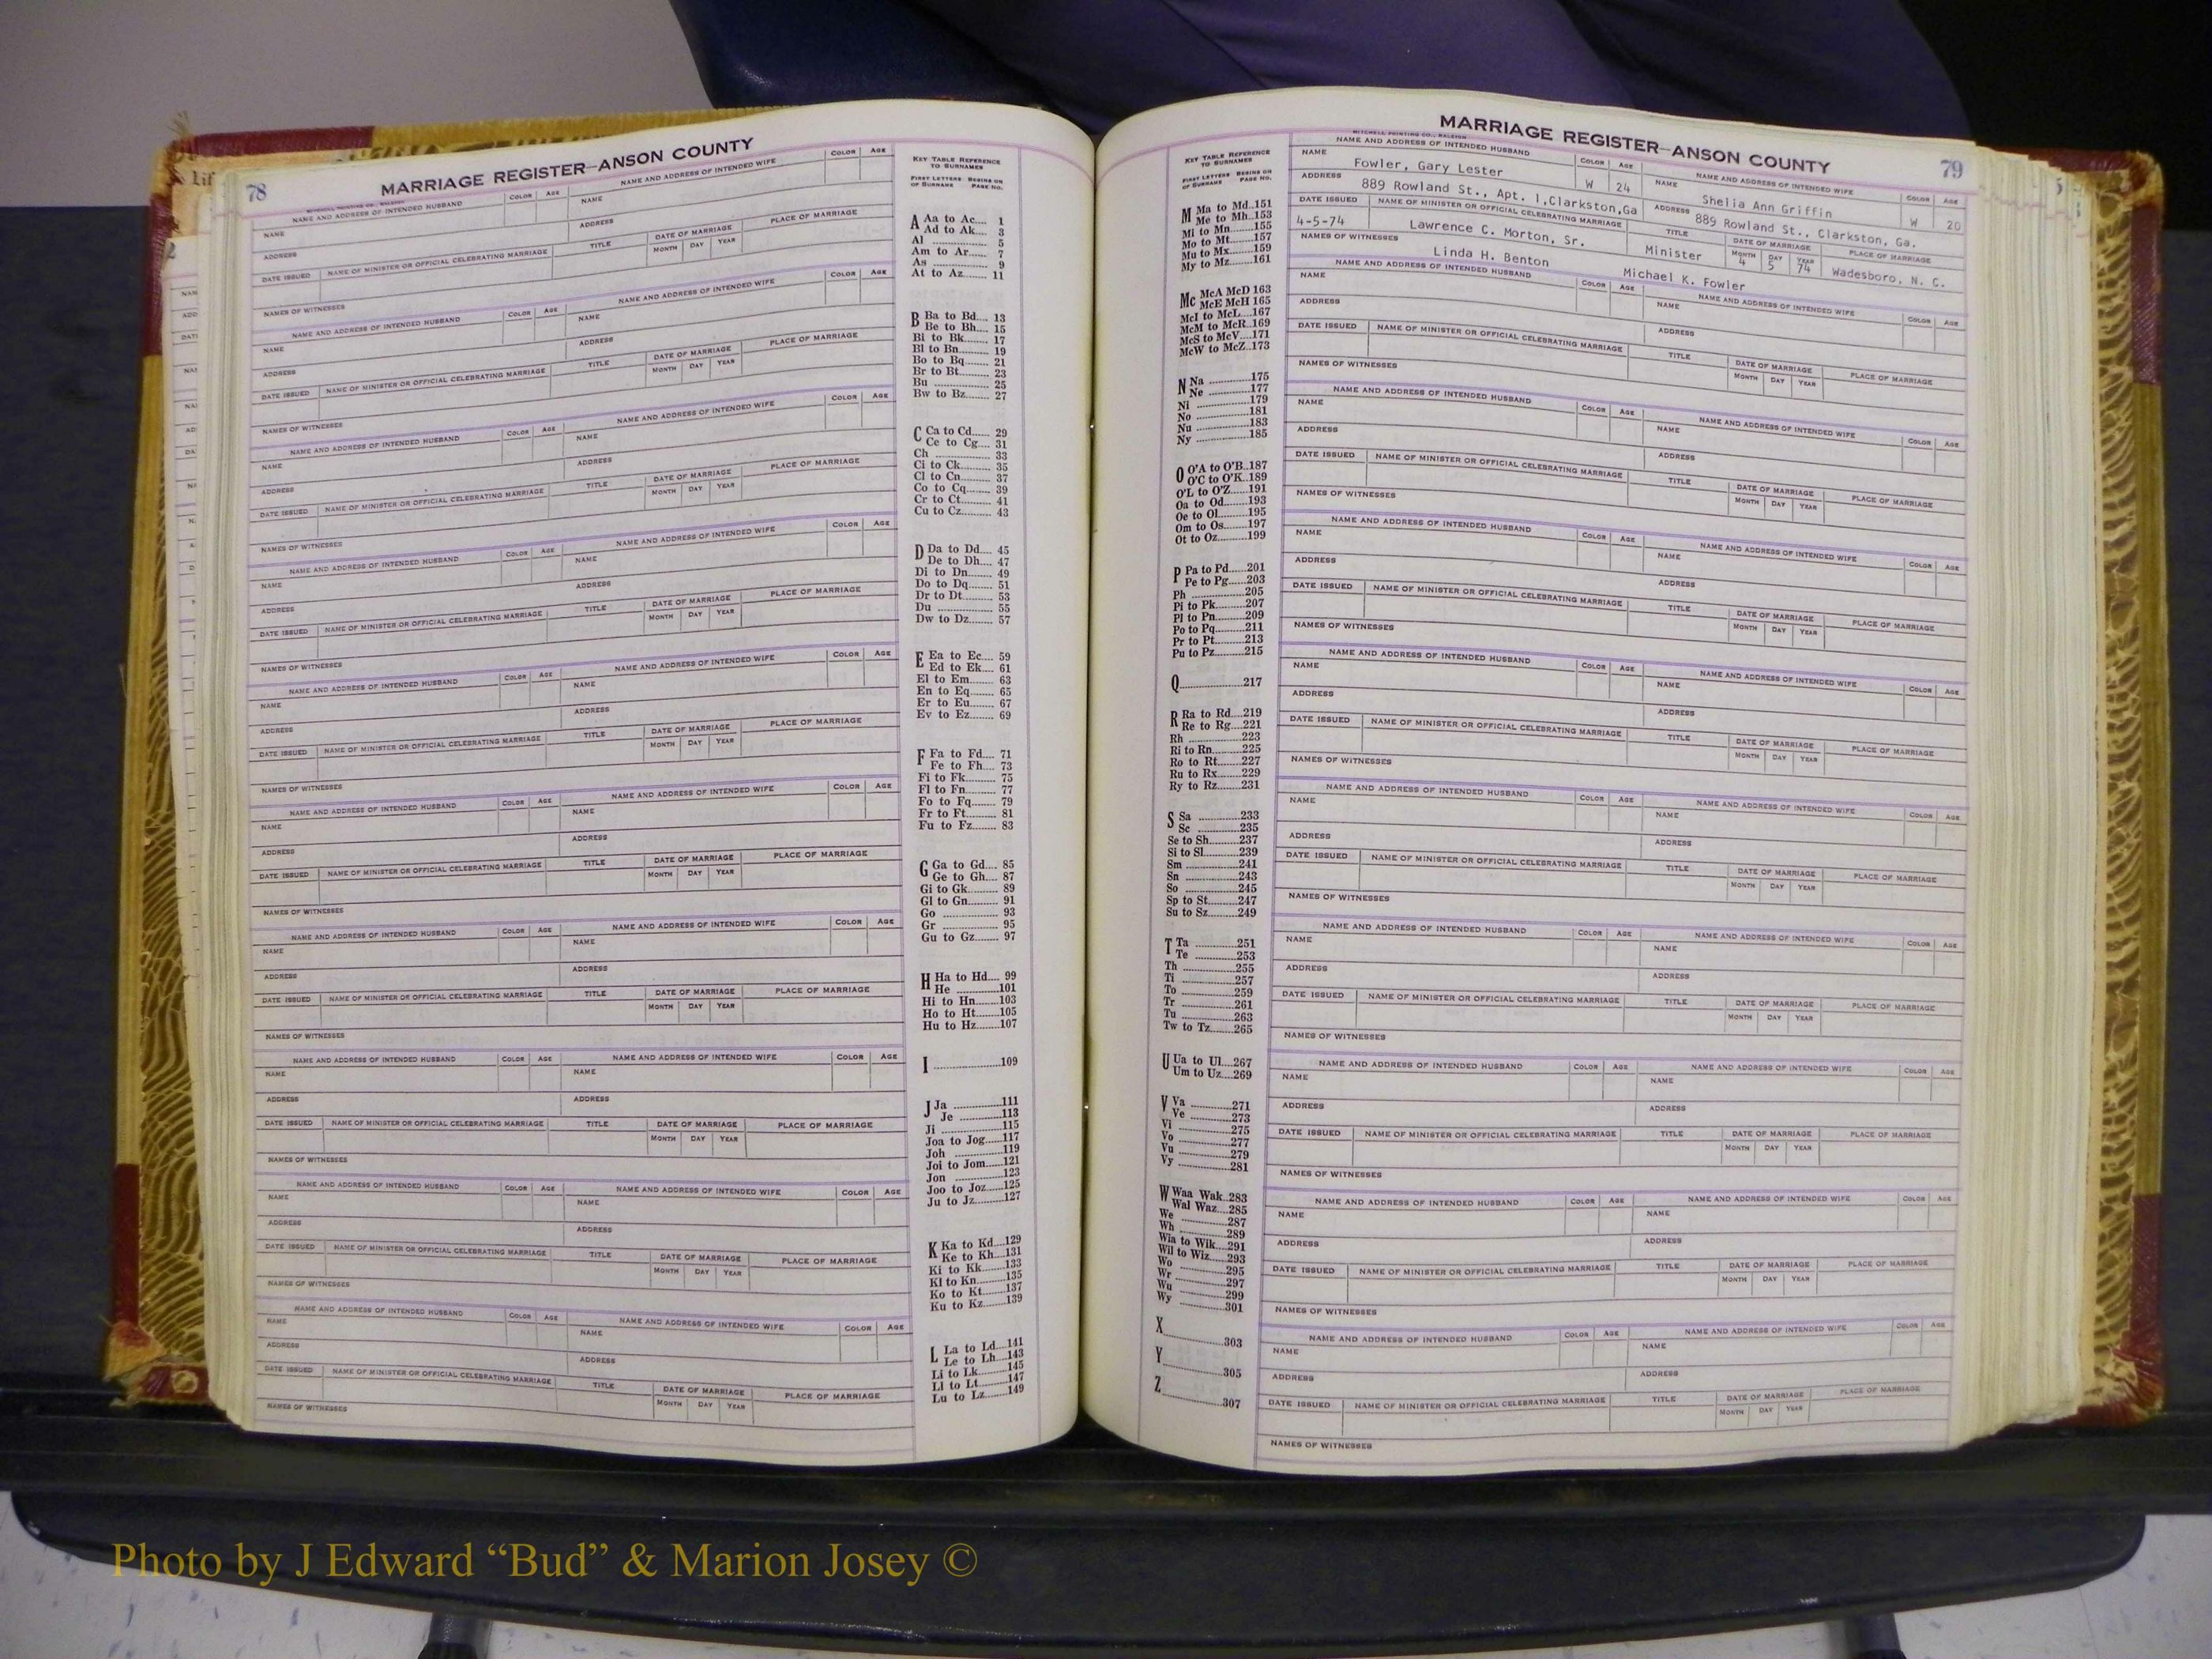 78
MARRIAGE REGISTER—ANSON COUNTY
NAME AND ADDRESS OF INTENDED HUSBAND COLOR AGE NAME AND ADDRESS OF INTENDED WIFE COLOR AGE
NAME NAME
ADDRESS ADDRESS
DATE ISSUED NAME OF MINISTER OR OFFICIAL CELEBRATING MARRIAGE TITLE DATE OF MARRIAGE PLACE OF MARRIAGE
MONTH DAY YEAR
NAMES OF WITNESSES
KEY TABLE REFERENCE
TO SURNAMES
FIRST LETTERS BEGINS ON
OF SURNAME PAGE NO.
A Aa to Ac.... 1
Ad to Ak.... 3
Al .... 5
Am to Ar.... 7
As .... 9
At to Az.... 11
B Ba to Bd.... 13
Be to Bh.... 15
Bi to Bk.... 17
Bl to Bn.... 19
Bo to Bq.... 21
Br to Bt.... 23
Bu .... 25
Bw to Bz.... 27
C Ca to Cd.... 29
Ce to Cg.... 31
Ch .... 33
Ci to Ck.... 35
Cl to Cn.... 37
Co to Cq.... 39
Cr to Ct.... 41
Cu to Cz.... 43
D Da to Dd.... 45
De to Dh.... 47
Di to Dn.... 49
Do to Dq.... 51
Dr to Dt.... 53
Du .... 55
Dw to Dz.... 57
E Ea to Ec.... 59
Ed to Ek.... 61
El to Em.... 63
En to Eq.... 65
Er to Eu.... 67
Ev to Ez.... 69
F Fa to Fd.... 71
Fe to Fh.... 73
Fi to Fk.... 75
Fl to Fn.... 77
Fo to Fq.... 79
Fr to Ft.... 81
Fu to Fz.... 83
G Ga to Gd.... 85
Ge to Gh.... 87
Gi to Gk.... 89
Gl to Gn.... 91
Go .... 93
Gr .... 95
Gu to Gz.... 97
H Ha to Hd.... 99
He ....101
Hi to Hn....103
Ho to Ht....105
Hu to Hz....107
I ....109
J Ja ....111
Je ....113
Ji ....115
Joa to Jog....117
Joh ....119
Joi to Jom....121
Jon ....123
Joo to Joz....125
Ju to Jz....127
K Ka to Kd....129
Ke to Kh....131
Ki to Kk....133
Kl to Kn....135
Ko to Kt....137
Ku to Kz....139
L La to Ld....141
Le to Lh....143
Li to Lk....145
Ll to Lt....147
Lu to Lz....149
MARRIAGE REGISTER—ANSON COUNTY
79
MITCHELL PRINTING CO., RALEIGH
KEY TABLE REFERENCE
TO SURNAMES
FIRST LETTERS BEGINS ON
OF SURNAME PAGE NO.
M Ma to Md..151
Me to Mh..153
Mi to Mn....155
Mo to Mt....157
Mu to Mx....159
My to Mz....161
Mc McA McD 163
McE McH 165
McI to McL....167
McM to McR..169
McS to McV....171
McW to McZ..173
N Na ....175
Ne ....177
Ni ....179
No ....181
Nu ....183
Ny ....185
O O'A to O'B..187
O'C to O'K..189
O'L to O'Z....191
Oa to Od....193
Oe to Ol....195
Om to Os....197
Ot to Oz....199
P Pa to Pd....201
Pe to Pg....203
Ph ....205
Pi to Pk....207
Pl to Pn....209
Po to Pq....211
Pr to Pt....213
Pu to Pz....215
Q....217
R Ra to Rd....219
Re to Rg....221
Rh ....223
Ri to Rn....225
Ro to Rt....227
Ru to Rx....229
Ry to Rz....231
S Sa ....233
Sc ....235
Se to Sh....237
Si to Sl....239
Sm ....241
Sn ....243
So ....245
Sp to St....247
Su to Sz....249
T Ta ....251
Te ....253
Th ....255
Ti ....257
To ....259
Tr ....261
Tu ....263
Tw to Tz....265
U Ua to Ul....267
Um to Uz....269
V Va ....271
Ve ....273
Vi ....275
Vo ....277
Vu ....279
Vy ....281
W Waa Wak..283
Wal Waz....285
We ....287
Wh ....289
Wia to Wik....291
Wil to Wiz....293
Wo ....295
Wr ....297
Wu ....299
Wy ....301
X ....303
Y ....305
Z ....307
NAME AND ADDRESS OF INTENDED HUSBAND COLOR AGE NAME AND ADDRESS OF INTENDED WIFE COLOR AGE
NAME Fowler, Gary Lester W 24 NAME Shelia Ann Griffin W 20
ADDRESS 889 Rowland St., Apt. 1,Clarkston,Ga ADDRESS 889 Rowland St., Clarkston, Ga.
DATE ISSUED NAME OF MINISTER OR OFFICIAL CELEBRATING MARRIAGE TITLE DATE OF MARRIAGE PLACE OF MARRIAGE
MONTH DAY YEAR
4-5-74 Lawrence C. Morton, Sr. Minister 4 5 74 Wadesboro, N. C.
NAMES OF WITNESSES Linda H. Benton Michael K. Fowler
NAME AND ADDRESS OF INTENDED HUSBAND COLOR AGE NAME AND ADDRESS OF INTENDED WIFE COLOR AGE
NAME NAME
ADDRESS ADDRESS
DATE ISSUED NAME OF MINISTER OR OFFICIAL CELEBRATING MARRIAGE TITLE DATE OF MARRIAGE PLACE OF MARRIAGE
MONTH DAY YEAR
NAMES OF WITNESSES
Photo by J Edward “Bud” & Marion Josey ©